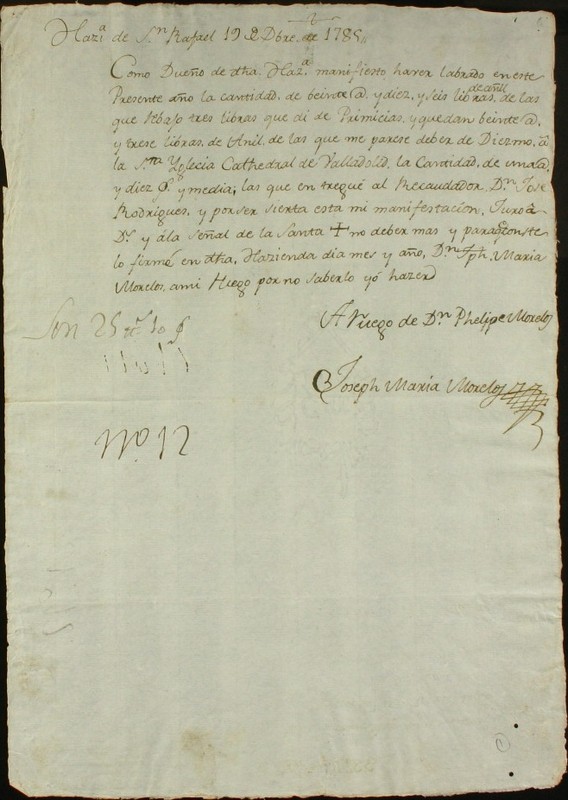 Hazª de Sn Rafael 19 de Dbre. de 1785
Como Dueño de dha. Hazª manifiesto haver labrado en este
Presente año la cantidad, de beinte @. y diez, y seis libras, de añil de las
que rebajo tres libras que di de Primicias, y quedan beinte @.
y trese libras, de Anil, de las que me parese deber de Diezmo, â
la Sta Yglecia Cathedral de Valladolid, la Cantidad, de una @.
y diez y media; las que entregué al Recaudador, Dn Jose
Rodrigues, y por ser sierta esta mi manifestacion, Juro â
Ds. y âla señal de la Santa ✝ no deber mas y para q conste
lo firmó en dha, Hazienda dia mes y año, Dn Jph. Maria
Morelos, ami Ruego por no saberlo yó hazer
A Ruego de Dn Phelipe Morelos
Joseph Maria Morelos
Son 25
No. 12